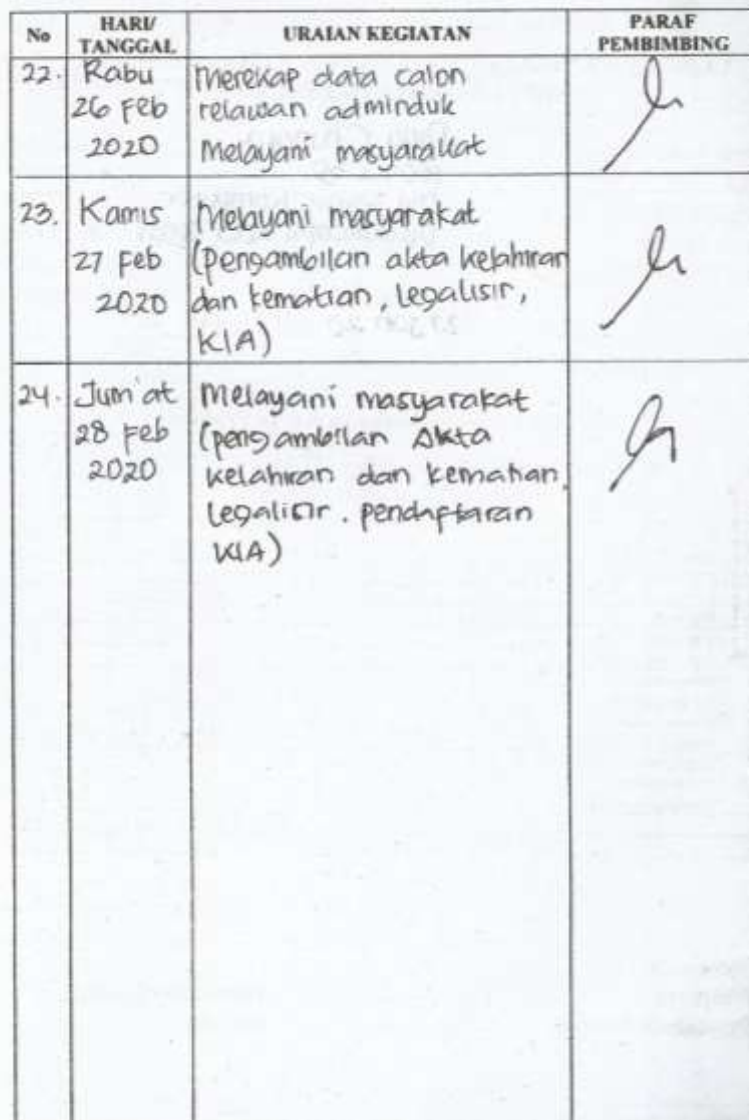 No HARI/ TANGGAL URAIAN KEGIATAN PARAF PEMBIMBING
22. Rabu Merekap data calon
26 Feb relawan adminduk
2020 Melayani masyarakat
23. Kamis Melayani masyarakat
27 Feb (pengambilan akta kelahiran
2020 dan kematian, legalisir,
KIA)
24. Jum'at Melayani masyarakat
28 Feb (pengambilan Akta
2020 kelahiran dan kematian,
legalisir. pendaftaran
KIA)